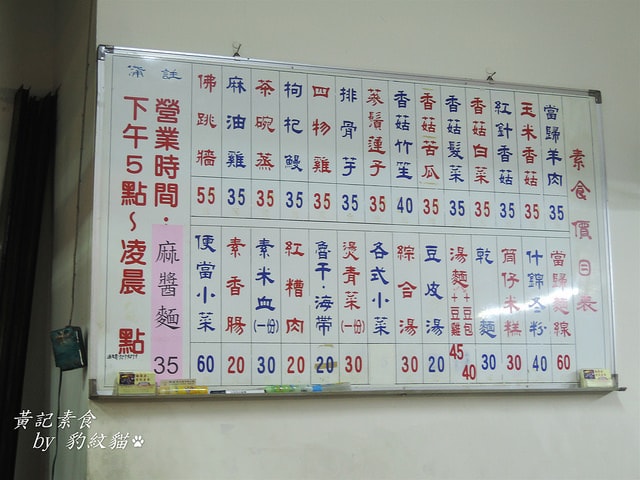 素食價目表
當歸羊肉 35
玉米香菇 35
紅針香菇 35
香菇白菜 35
香菇髮菜 35
香菇苦瓜 35
香菇竹笙 40
蔘鬚蓮子 35
排骨芋 35
四物雞 35
枸杞鰻 35
茶碗蒸 35
麻油雞 35
佛跳牆 55
當歸麵線 60
什錦冬粉 40
筒仔米糕 30
乾麵 30
湯麵+豆包 40
+豆雞 45
豆皮湯 20
綜合湯 30
各式小菜
燙青菜(一份) 30
魯干·海帶 20
紅糟肉 20
素米血(一份) 30
素香腸 20
便當小菜 60
備註
營業時間·
下午5點~凌晨 點
麻醬麵 35
黃記素食
by 豹紋貓